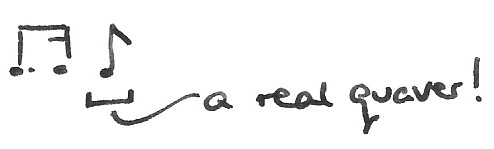 a real quaver!